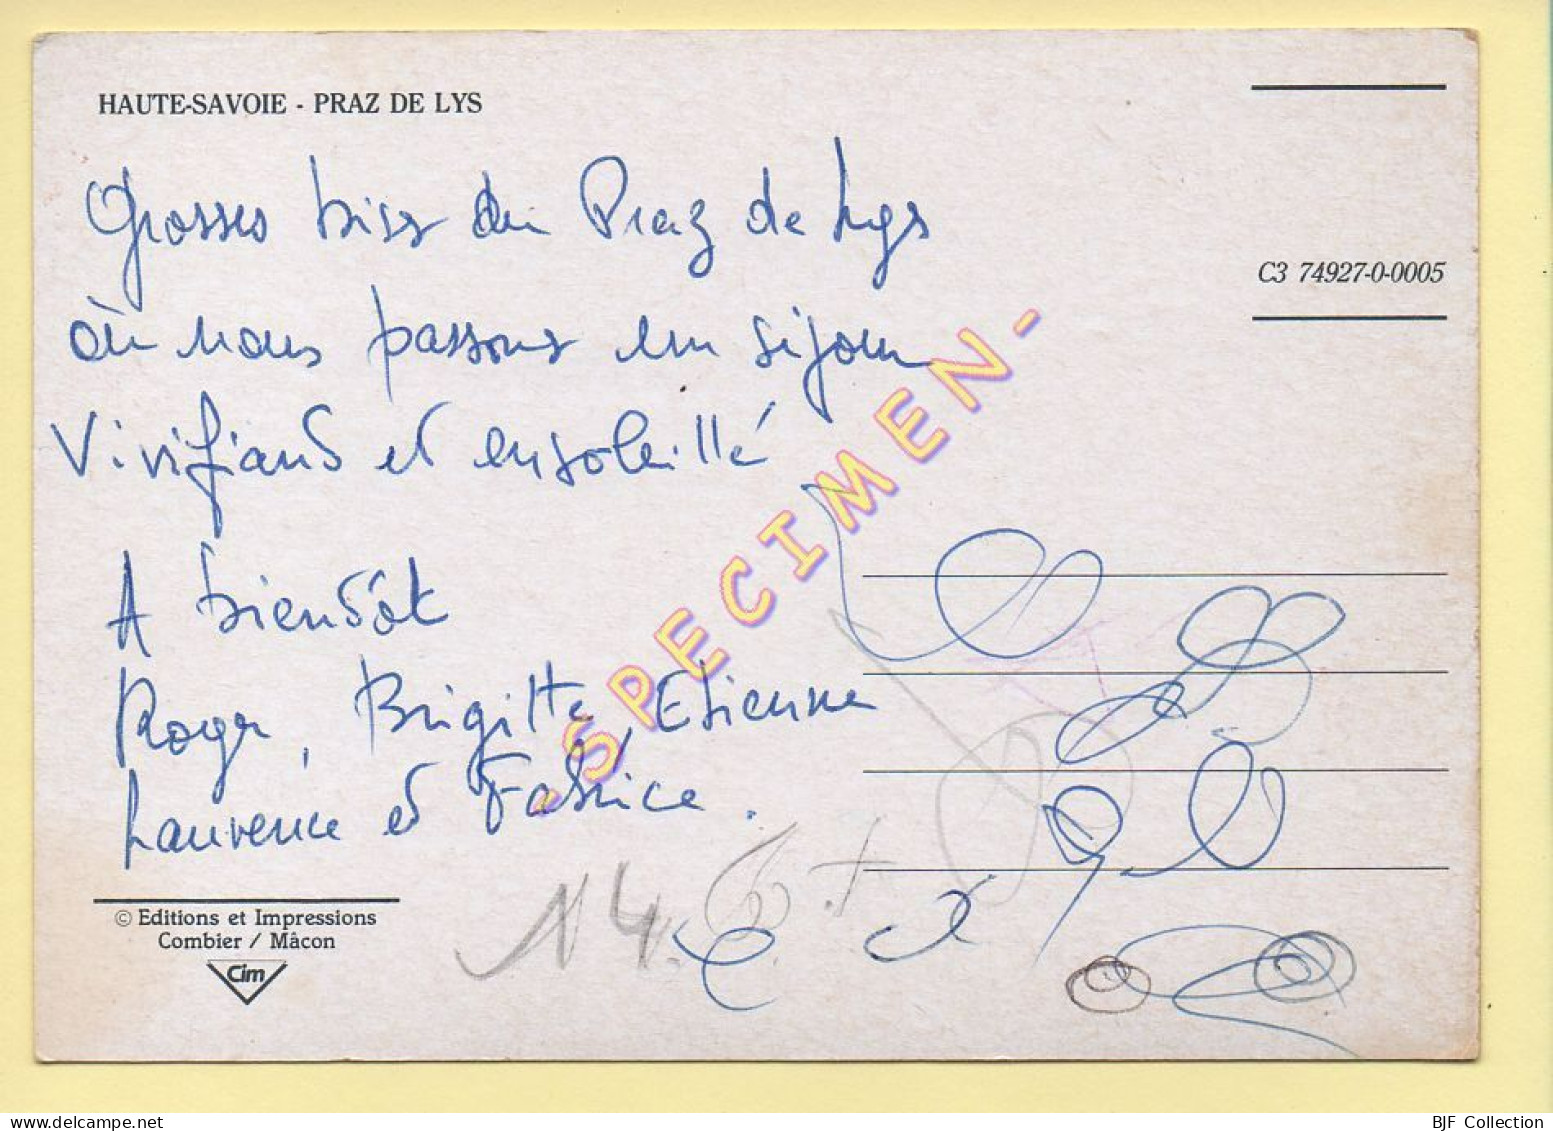 HAUTE-SAVOIE - PRAZ DE LYS
Grosses bises du Praz de Lys
où nous passons un séjour
vivifiant et ensoleillé
A bientôt
Roger, Brigitte, Etienne
Laurence et Fabrice.
C3 74927-0-0005
-SPECIMEN-
© Editions et Impressions
Combier / Mâcon
Cim
14
BJF Collection